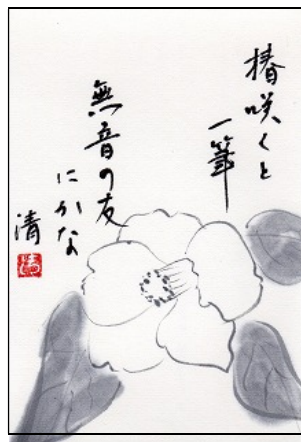 椿咲くと
一筆
無音の友
にかな
清
清